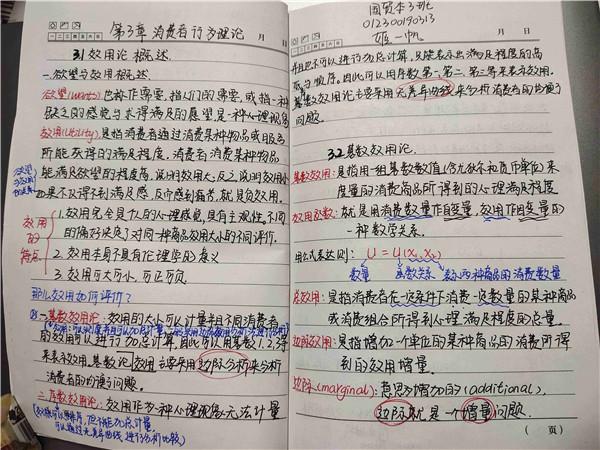 第3章 消费者行为理论
月 日
3.1 效用论概述
一.欲望与效用概述.
欲望(wants): 也称作需要,指人们的需要,或指一种
缺乏的感觉与求得满足的愿望是一种心理现象
效用(Utility),是指消费者通过消费某种物品或服务
所能获得的满足程度,消费者消费某种物品
能满足欲望的程度高,说明效用大;反之说明效用小
如果不仅得不到满足感,反而感到痛苦,就是负效用.
效用的特点
1.效用完全是个人的心理感觉,具有主观性,不同
的偏好决定了对同一种商品效用大小的不同评价.
2.效用本身不具有伦理学的意义
3.效用可大可小,可正可负.
那么效用如何评价?
一.基数效用论: 效用的大小可以计量并且不同消费者
的效用可以进行加总计算,因此可以用基数1.2.3等
来表示效用,基数论 效用主要采用边际分析来分析
消费者的均衡问题.
二.序数效用论: 效用作为一种心理现象无法计量
国贸本3班
012300190313
姬一帆
月 日
并且也不可以进行加总计算,只能表示出满足程度的高
低与顺序.因此可以用序数第一.第二.第三等来表示效用.
序数效用论主要采用无差异曲线来分析消费者的均衡
问题.
3.2 基数效用论.
基数效用: 是指用一组基数数值(含九欧尔和货币单位)来
度量的消费商品所得到的心理满足程度
效用函数: 就是用消费数量作自变量,效用作因变量的
一种数学关系.
用公式表达则: U = U(x₁, x₂)
效用数量 函数关系 表示两种商品的消费数量
总效用: 是指消费者在一定条件下消费一定数量的某种商品
或消费组合所得到心理满足程度的总量.
边际效用: 是指增加一个单位的某种商品的消费所得
到的效用增量.
边际(marginal): 意思为增加的(additional),
边际就是一个增量问题.
( 页)